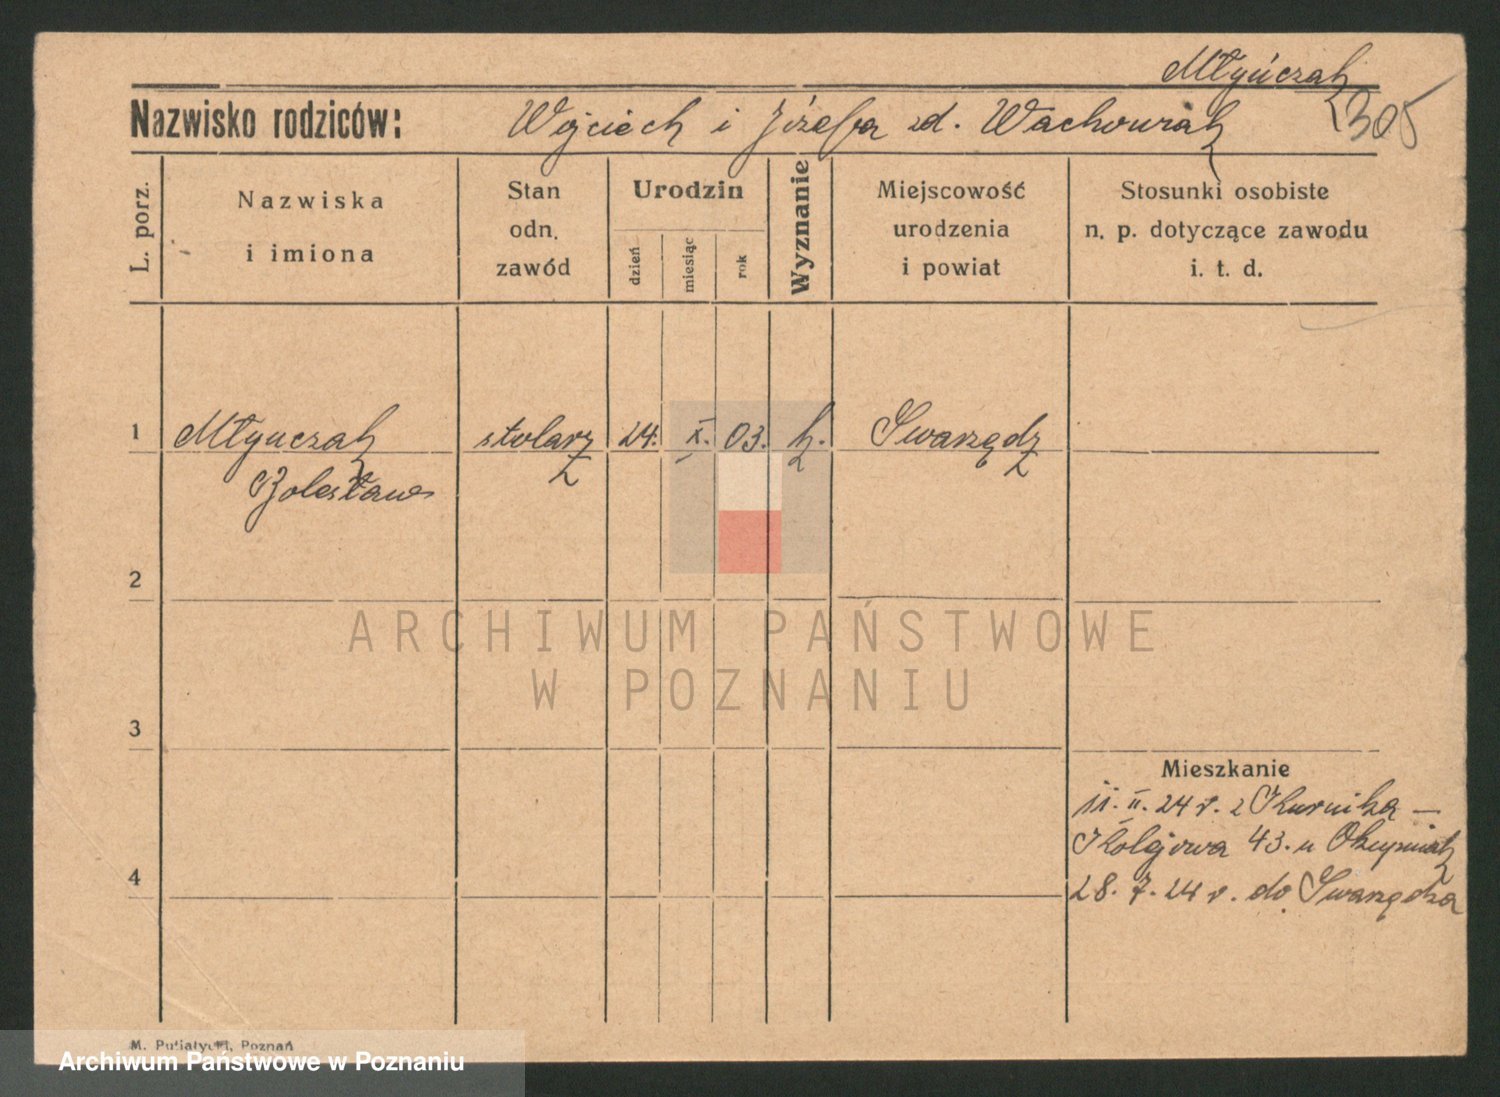 Młyńczak
305
Nazwisko rodziców: Wojciech i Józefa zd. Wachowiak
L. porz.
Nazwiska
i imiona
Stan
odn.
zawód
Urodzin
dzień
miesiąc
rok
Wyznanie
Miejscowość
urodzenia
i powiat
Stosunki osobiste
n. p. dotyczące zawodu
i. t. d.
1 Młyńczak stolarz 24. X. 03. k. Swarzędz
Bolesław
2
ARCHIWUM PAŃSTWOWE
W POZNANIU
3
Mieszkanie
11. II. 24 r. z Kurnika —
Kolejowa 43. u
4
28. 7. 24 r. do Swarzędza
M. Putiatycki, Poznań
Archiwum Państwowe w Poznaniu